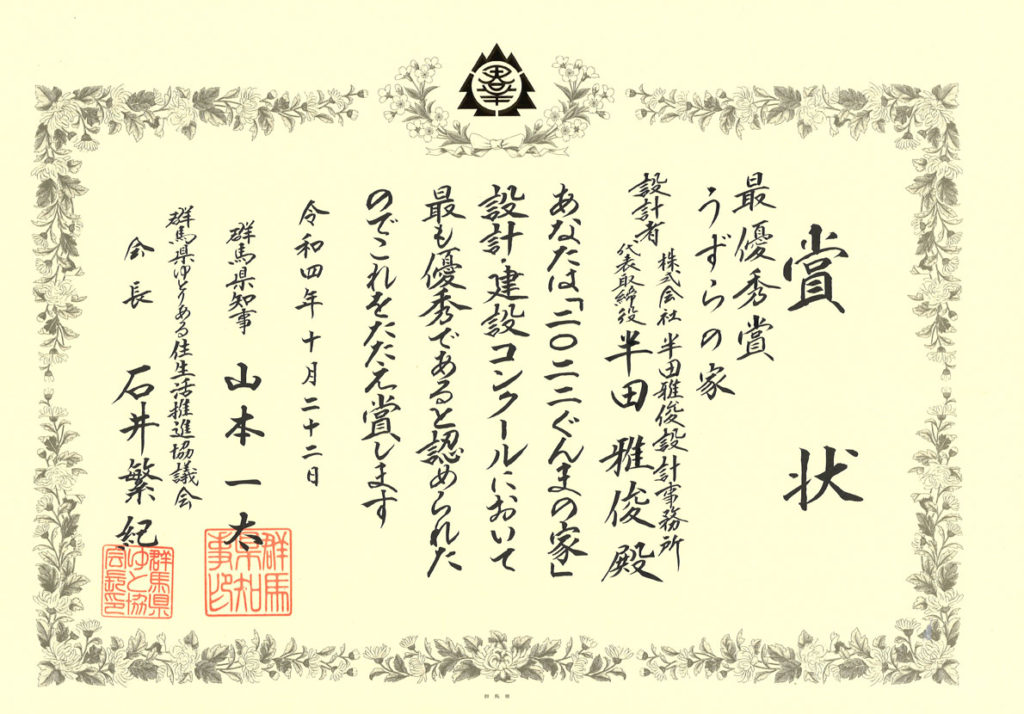 賞状
最優秀賞
うずらの家
設計者
株式会社 半田雅俊設計事務所
代表取締役 半田雅俊殿
あなたは「二〇二二ぐんまの家」
設計・建設コンクールにおいて
最も優秀であると認められた
のでこれをたたえ賞します
令和四年十月二十二日
群馬県知事 山本一太
群馬県ゆとりある住生活推進協議会
会長 石井繁紀
群馬県知事印
群馬県ゆと協会長印